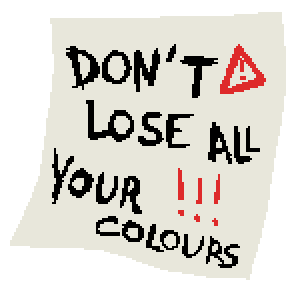 DON'T ⚠
LOSE ALL
YOUR !!!
COLOURS